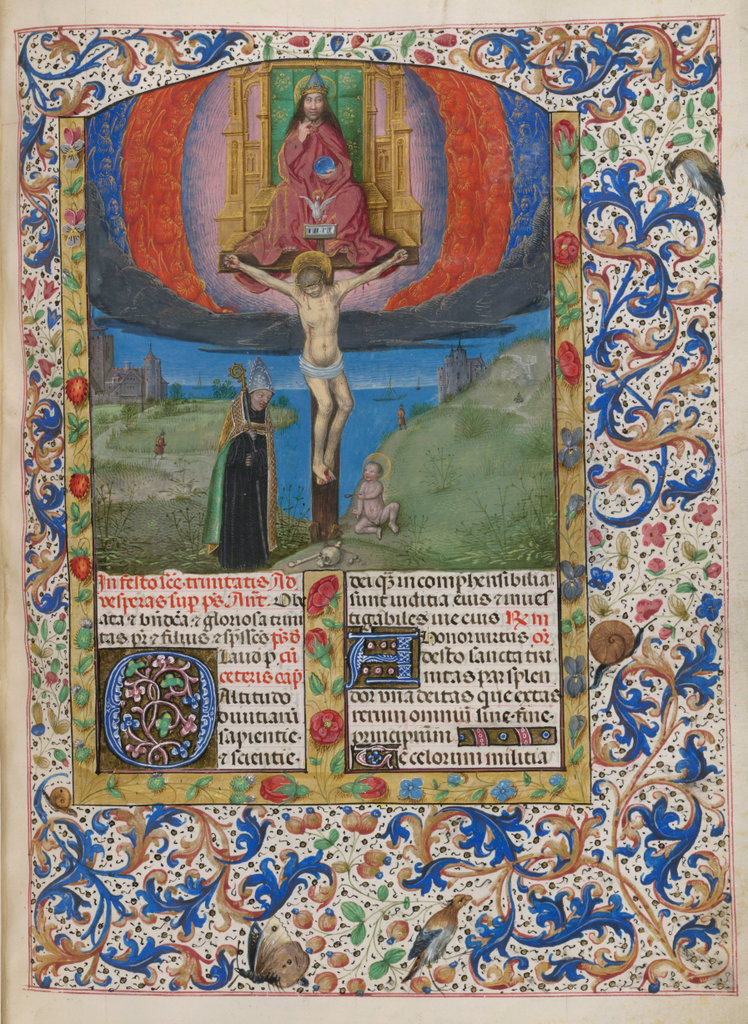 In festo scē trinitatis Ad
vesperas sup ps̄. Ant̄. O be
ata ⁊ bn̄dc̄a ⁊ gloriosa trini
tas pr̄ ⁊ filius ⁊ sp̄ssc̄s ps̄ d
Laud p̄ cū
ceteris cap̄
O Altitudo
divitiarū
sapientie
⁊ scientie
dei q̄ incomphensibilia
sunt iuditia eius ⁊ inves
tigabiles vie eius
Honor virtus
Adesto sancta tri
nitas par splen
dor una deitas que extas
rerum omniū sine fine
principium
Te celorum militia